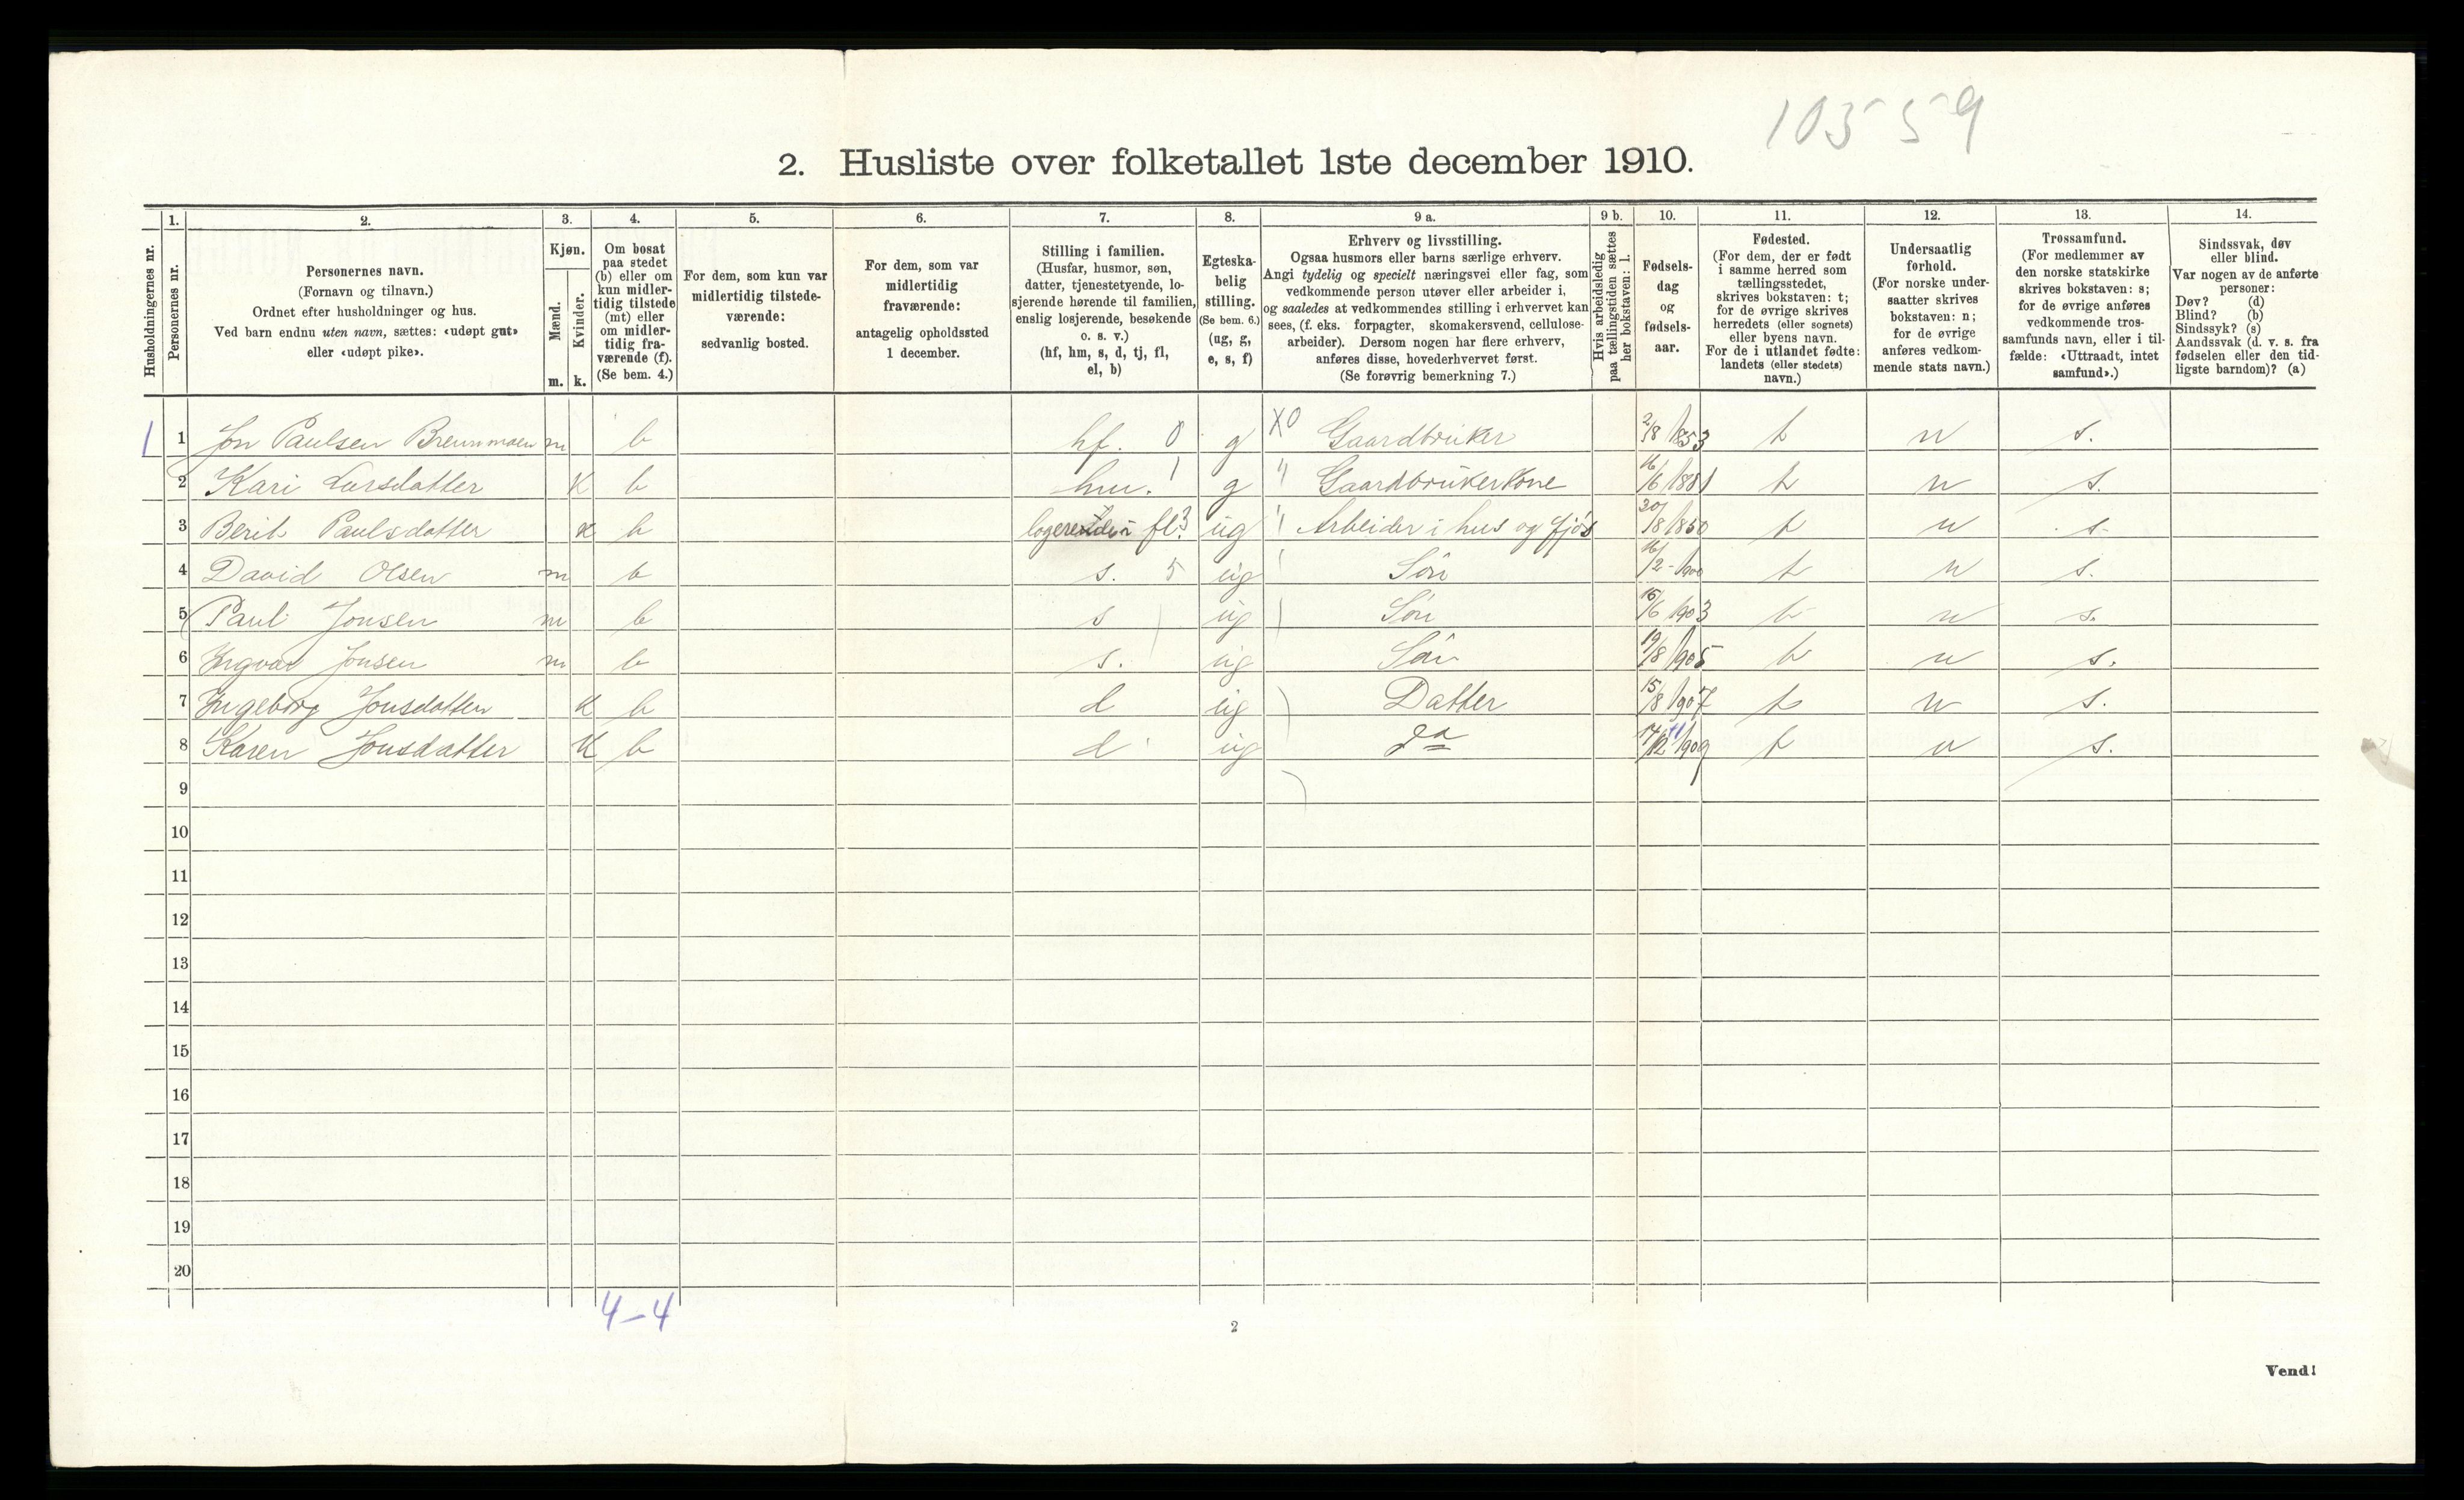 10559
2. Husliste over folketallet 1ste december 1910.
Husholdningernes nr.
1.
Personernes nr.
2.
Personernes navn.
(Fornavn og tilnavn.)
Ordnet efter husholdninger og hus.
Ved barn endnu uten navn, sættes: «udøpt gut»
eller «udøpt pike».
3.
Kjøn.
Mænd.
Kvinder.
m. k.
4.
Om bosat
paa stedet
(b) eller om
kun midler-
tidig tilstede
(mt) eller
om midler-
tidig fra-
værende (f).
(Se bem. 4.)
5.
For dem, som kun var
midlertidig tilstede-
værende:
sedvanlig bosted.
6.
For dem, som var
midlertidig
fraværende:
antagelig opholdssted
1 december.
7.
Stilling i familien.
(Husfar, husmor, søn,
datter, tjenestetyende, lo-
sjerende hørende til familien,
enslig losjerende, besøkende
o. s. v.)
(hf, hm, s, d, tj, fl,
el, b)
8.
Egteska-
belig
stilling.
(Se bem. 6.)
(ug, g,
e, s, f)
9 a.
Erhverv og livsstilling.
Ogsaa husmors eller barns særlige erhverv.
Angi tydelig og specielt næringsvei eller fag, som
vedkommende person utøver eller arbeider i,
og saaledes at vedkommendes stilling i erhvervet kan
sees, (f. eks. forpagter, skomakersvend, cellulose-
arbeider). Dersom nogen har flere erhverv,
anføres disse, hovederhvervet først.
(Se forøvrig bemerkning 7.)
9 b.
Hvis arbeidsledig
paa tællingstiden sættes
her bokstaven: l.
10.
Fødsels-
dag
og
fødsels-
aar.
11.
Fødested.
(For dem, der er født
i samme herred som
tællingsstedet,
skrives bokstaven: t;
for de øvrige skrives
herredets (eller sognets)
eller byens navn.
For de i utlandet fødte:
landets (eller stedets)
navn.)
12.
Undersaatlig
forhold.
(For norske under-
saatter skrives
bokstaven: n;
for de øvrige
anføres vedkom-
mende stats navn.)
13.
Trossamfund.
(For medlemmer av
den norske statskirke
skrives bokstaven: s;
for de øvrige anføres
vedkommende tros-
samfunds navn, eller i til-
fælde: «Uttraadt, intet
samfund».)
14.
Sindssvak, døv
eller blind.
Var nogen av de anførte
personer:
Døv? (d)
Blind? (b)
Sindssyk? (s)
Aandssvak (d. v. s. fra
fødselen eller den tid-
ligste barndom)? (a)
1 1 Jon Paulsen Brennmoen m b hf. 0 g X0 Gaardbruker 2/8 1853 t n s.
2 Kari Larsdatter k b hm. 1 g " Gaardbrukerkone 16/6 1881 t n s.
3 Berit Paulsdatter k b fl 3 ug " Arbeider i hus og fjøs 20/8 1850 t n s.
4 David Olsen m b s. 5 ug Søn 16/2 - 1900 t n s.
5 Paul Jonsen m b s ug Søn 15/6 1903 t n s.
6 Ingvar Jonsen m b s. ug Søn 19/8 1905 t n s.
7 Ingeborg Jonsdatter k b d ug Datter 15/8 1907 t n s.
8 Karen Jonsdatter k b d ug do 1909 t n s.
9
10
11
12
13
14
15
16
17
18
19
20
4-4
2
Vend!